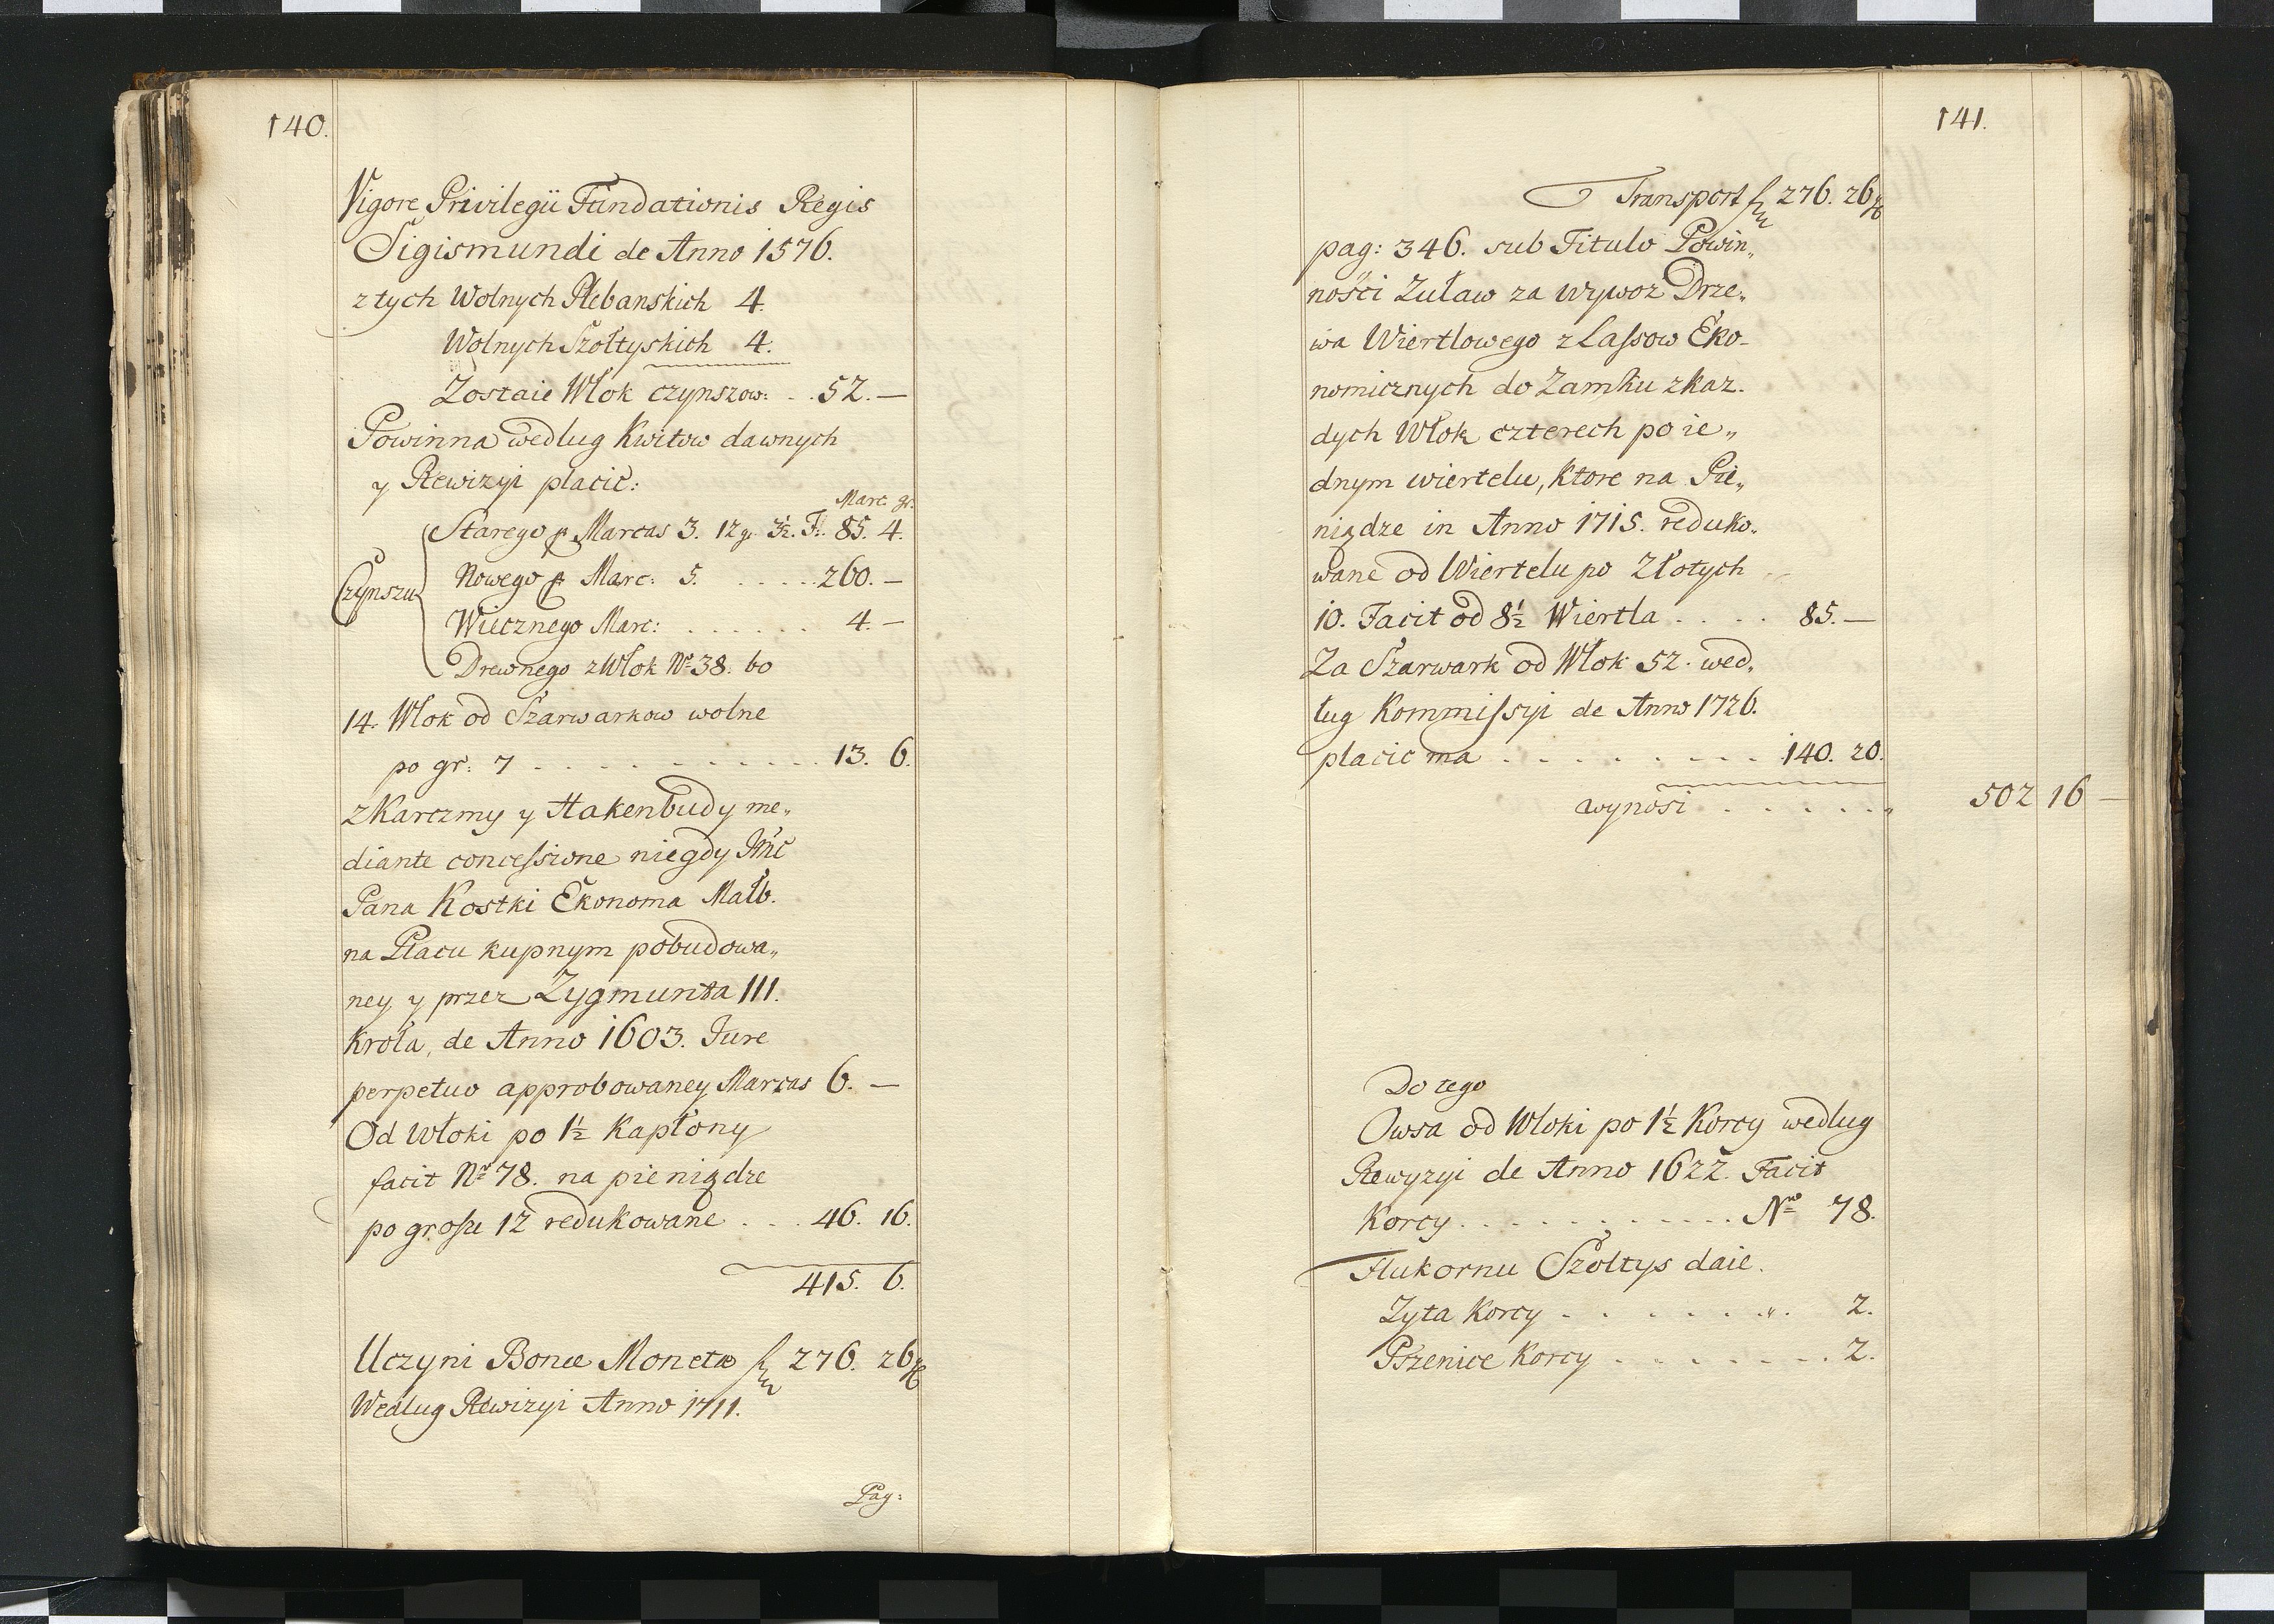 140.
Vigore Privilegii Fundationis Regis
Sigismundi de Anno 1576.
z tych Wolnych Plebanskich 4.
Wolnych Szołtyskich 4.
Zostaie Włok czynszow: . . 52. —
Powinna według Kwitow dawnych
y Rewizyi placić:
Marc. gr.
Starego Marcas 3. 12 g. 3½. F. 85. 4.
Czynszu
Nowego Marc: 5. . . . . . 260. —
Wiecznego Marc: . . . . . . 4. —
Drewnego z Włok Nr 38. bo
14. Włok od Szarwarkow wolne
po gr: 7 . . . . . . . . . . . 13. 6.
z Karczmy y Hakenbudy me„
diante concessione niegdy Jmć
Pana Kostki Ekonoma Malb.
na Placu kupnym pobudowa„
ney, y przez Zygmunta III.
Krola, de Anno 1603. Jure
perpetuo approbowaney Marcas 6. —
Od włoki po 1½ Kapłony
facit Nr 78. na pieniądze
po grosze 12 redukowane . . . 46. 16.
415. 6.
Uczyni Bonæ Monetæ 276. 26
Według Rewizyi Anno 1711.
Pag:
141.
Transport 276. 26
pag: 346. sub Titulo Powin„
ności Zuław za wywoz Drze„
wa Wiertlowego z Lassow Eko-
nomicznych do Zamku z kaz.
dych Włok czterech po ie„
dnym wiertelu, Ktore na Pie„
niądze in Anno 1715. reduko„
wane od Wiertelu po Złotych
10. Facit od 8½ Wiertla . . . . 85. —
Za Szarwark od Włok 52. wed„
ług Kommissyi de Anno 1726.
placic ma . . . . . . . . 140. 20.
wynosi . . . . . . 502 16 —
Do tego
Owsa od Wloki po 1½ Korcy według
Rewyzyi de Anno 1622. Facit
Korcy . . . . . . . . . . . Nro 78.
Hukornu Szoltys daie.
Zyta Korcy . . . . . . . „ . 2.
Pszenice Korcy . . . . . . . 2.